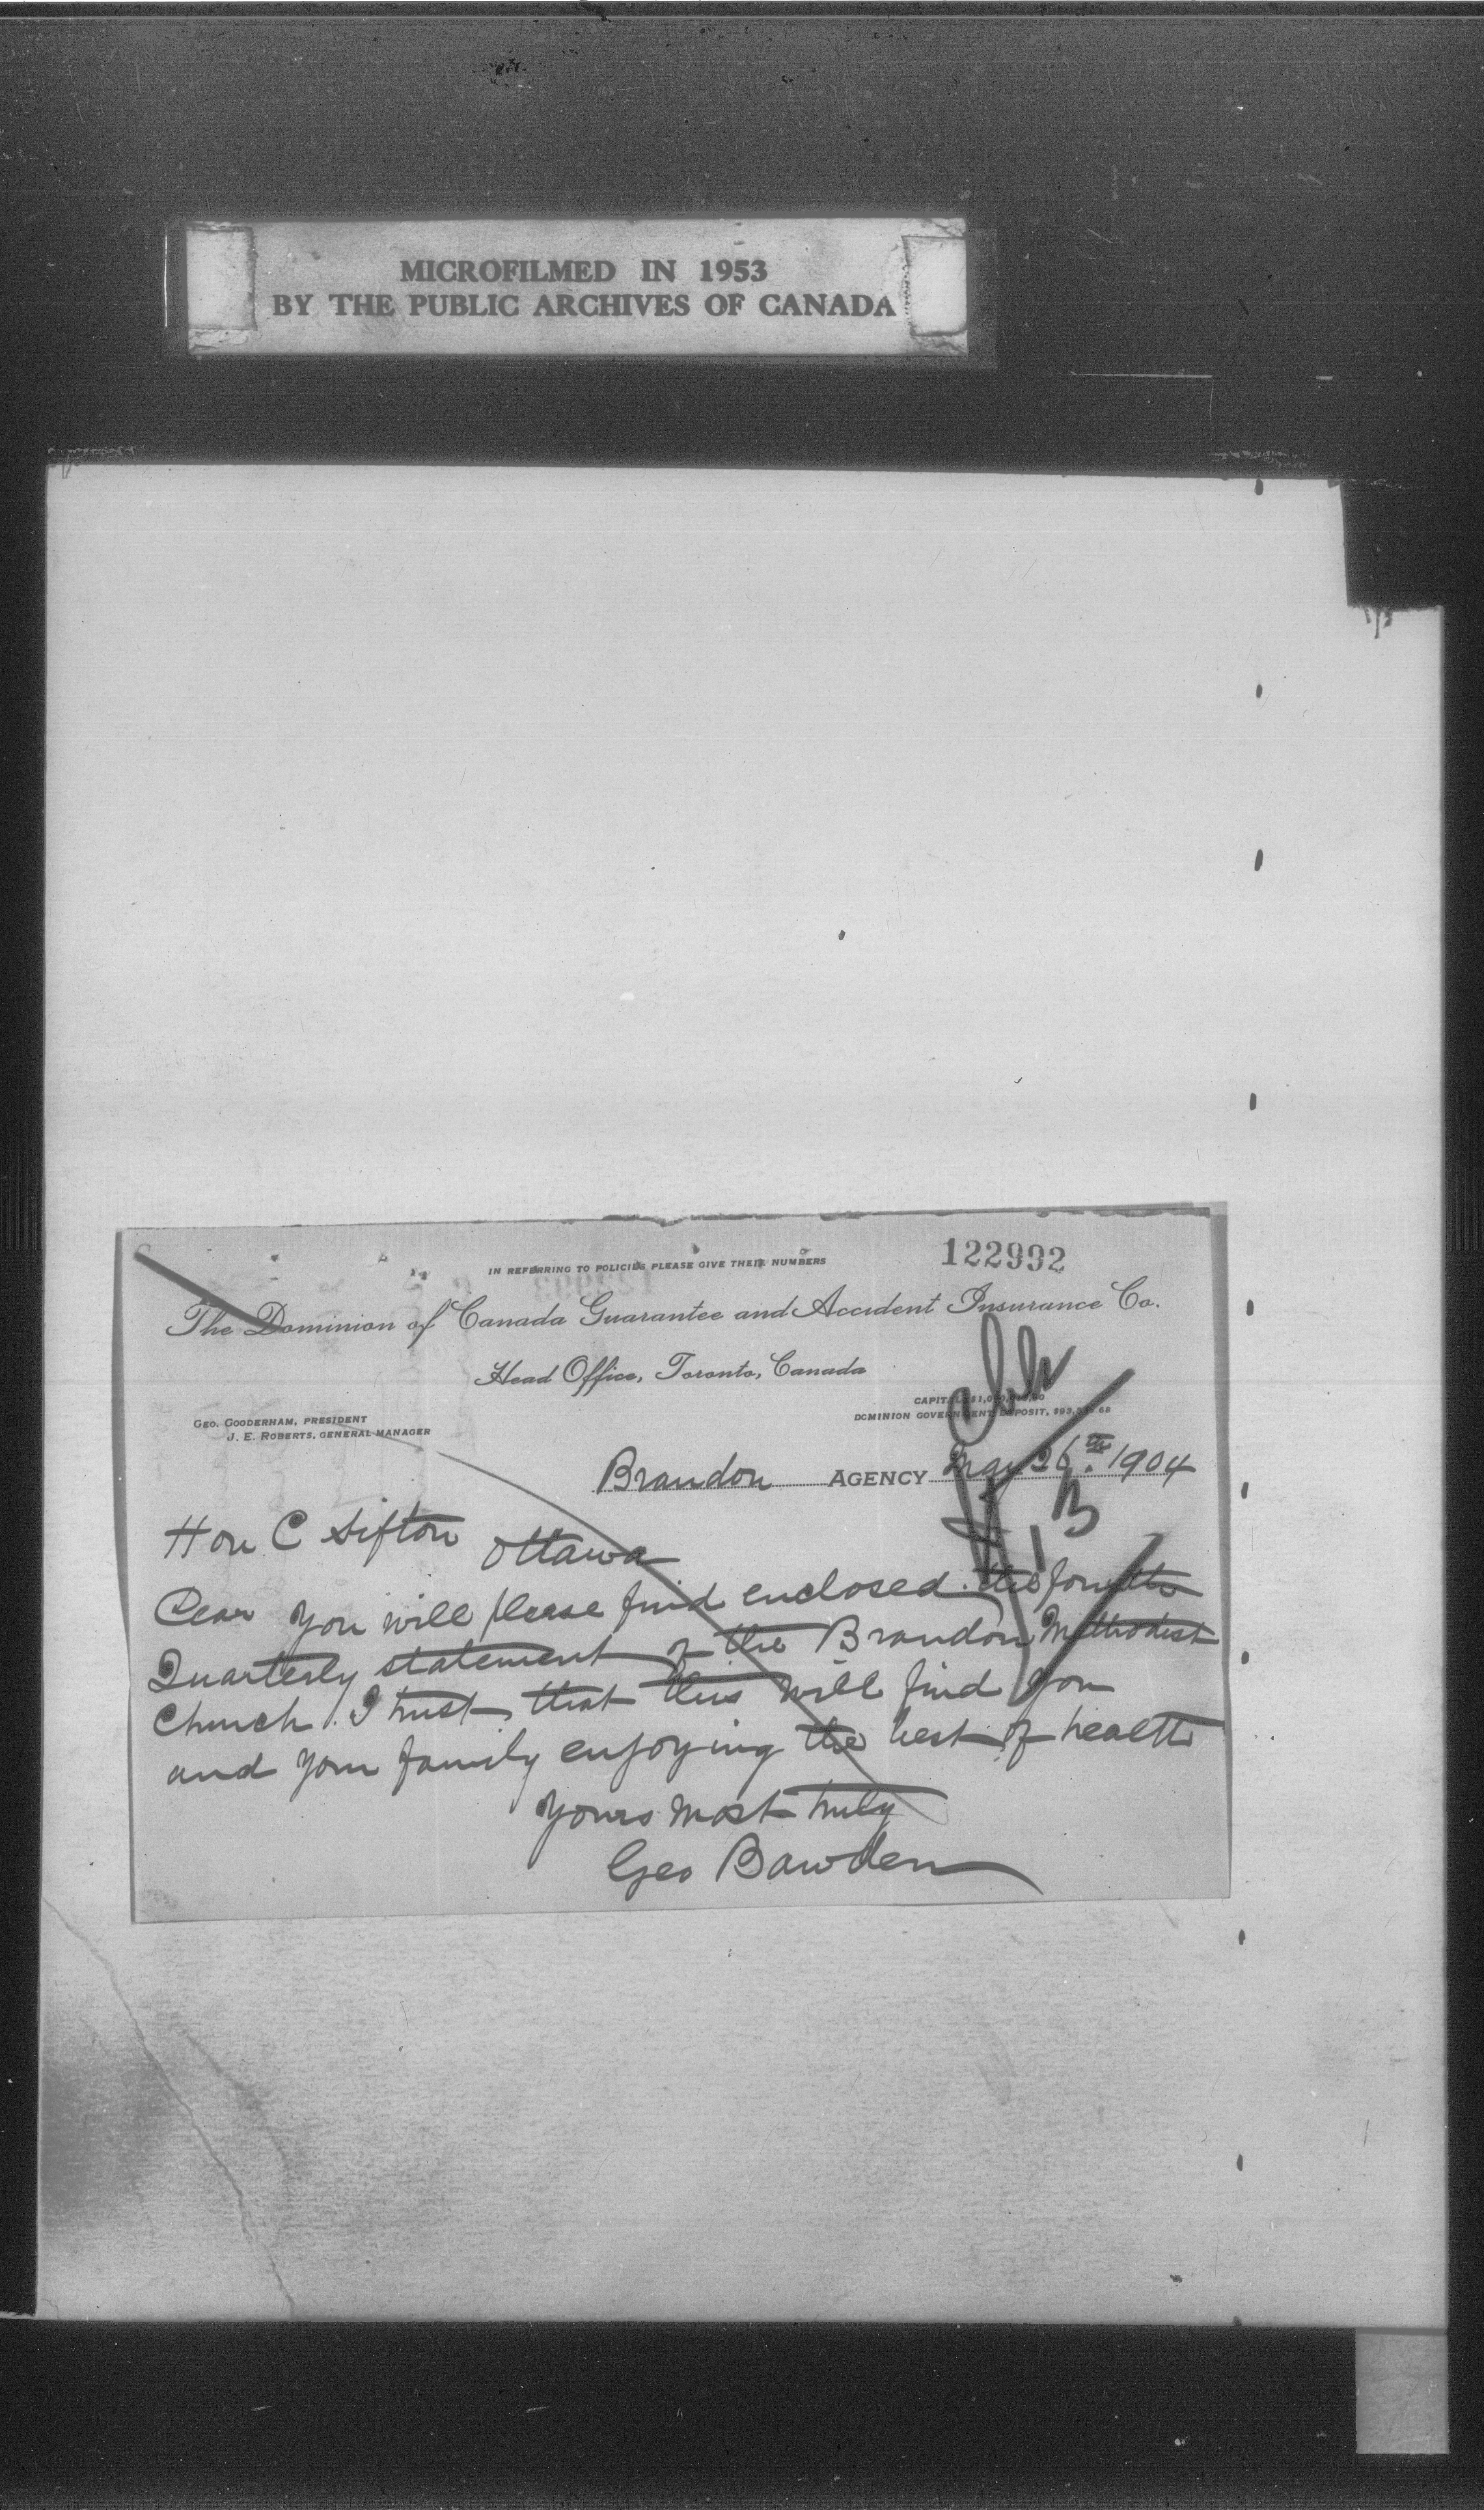 MICROFILMED IN 1953
BY THE PUBLIC ARCHIVES OF CANADA
IN REFERRING TO POLICIES PLEASE GIVE THEIR NUMBERS
122992
The Dominion of Canada Guarantee and Accident Insurance Co.
Head Office, Toronto, Canada
GEO. GOODERHAM, PRESIDENT
J. E. ROBERTS, GENERAL MANAGER
DOMINION GOVERNMENT DEPOSIT,
Brandon AGENCY May 26th 1904
Hon C Sifton
Ottawa
Dear you will please find enclosed the fourth
Quarterly statement of the Brandon Methodist
Church. I trust that this will find you
and your family enjoying the best of health
Yours most truly
Geo Bawden